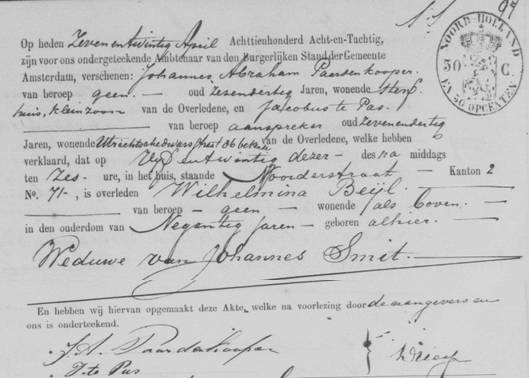 NOORD-HOLLAND
30 C.
EN 50 OPCENTEN
Op heden Zevenentwintig April Achttienhonderd Acht-en-Tachtig,
zijn voor ons ondergeteekende Ambtenaar van den Burgerlijken Stand der Gemeente
Amsterdam, verschenen: Johannes Abraham Paerdenkooper
van beroep geen — oud Zesendertig Jaren, wonende
huis, kleinzoon van de Overledene, en Jacobus te Pas.
van beroep aanspreker oud Zevenendertig
Jaren, wonende Utrechtschedwarsstraat 36 bekende van de Overledene, welke hebben
verklaard, dat op Vijfentwintig dezer — des na middags
ten Zes — ure, in het huis, staande Noorderstraat — Kanton 2
No. 71 -, is overleden Wilhelmina Beijl.
van beroep — geen — wonende als boven. —
in den ouderdom van Negentig Jaren — geboren alhier. —
Weduwe van Johannes Smit.
En hebben wij hiervan opgemaakt deze Akte, welke na voorlezing door de aangevers en
ons is onderteekend.
J. A. Paerdenkooper
J. te Pas